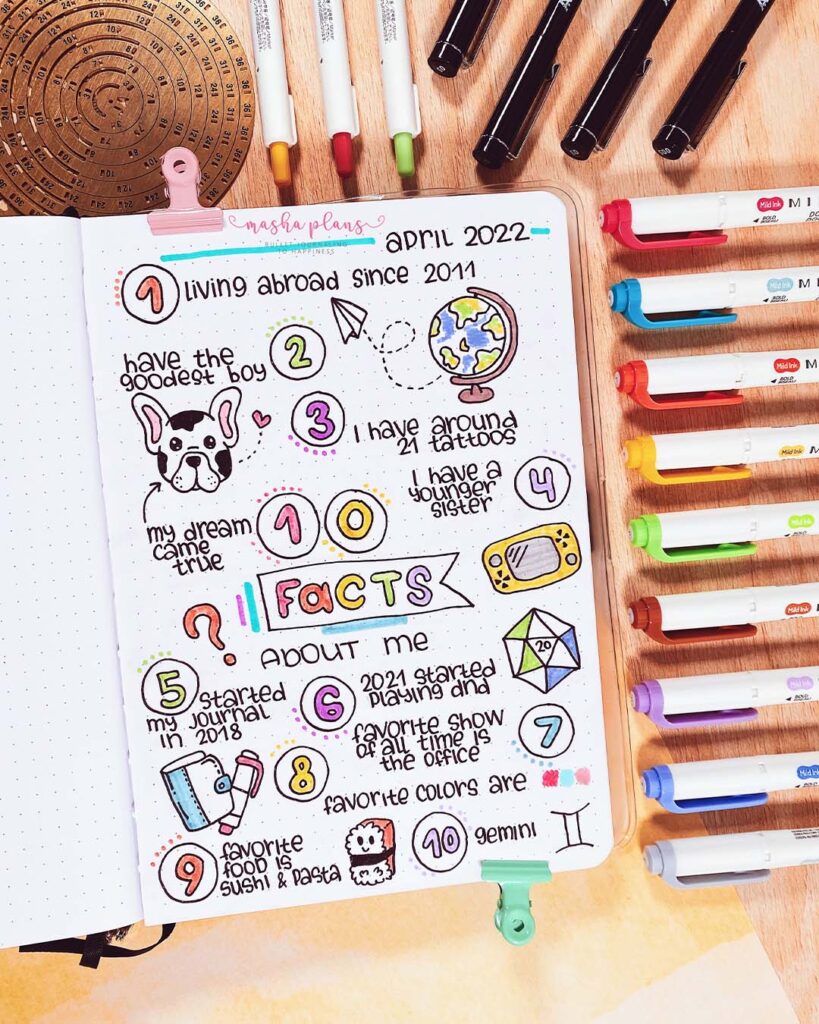 masha plans
BULLET JOURNALING
TO HAPPINESS
APRIL 2022
1 living abroad since 2011
2 have the
goodest boy
3 I have around
21 tattoos
4 I have a
younger
sister
my dream
came
true
10
FaCTS
?
ABOUT ME
5 started
my journal
in 2018
6 2021 started
playing dnd
20
7 favorite show
of all time is
the office
8 favorite colors are
9 favorite
food is
sushi & pasta
10 gemini
Mild Ink
BOLD
Mild Ink
BOLD
Mild Ink
BOLD
Mild Ink
Mild Ink
Mild Ink
Mild Ink
Mild Ink